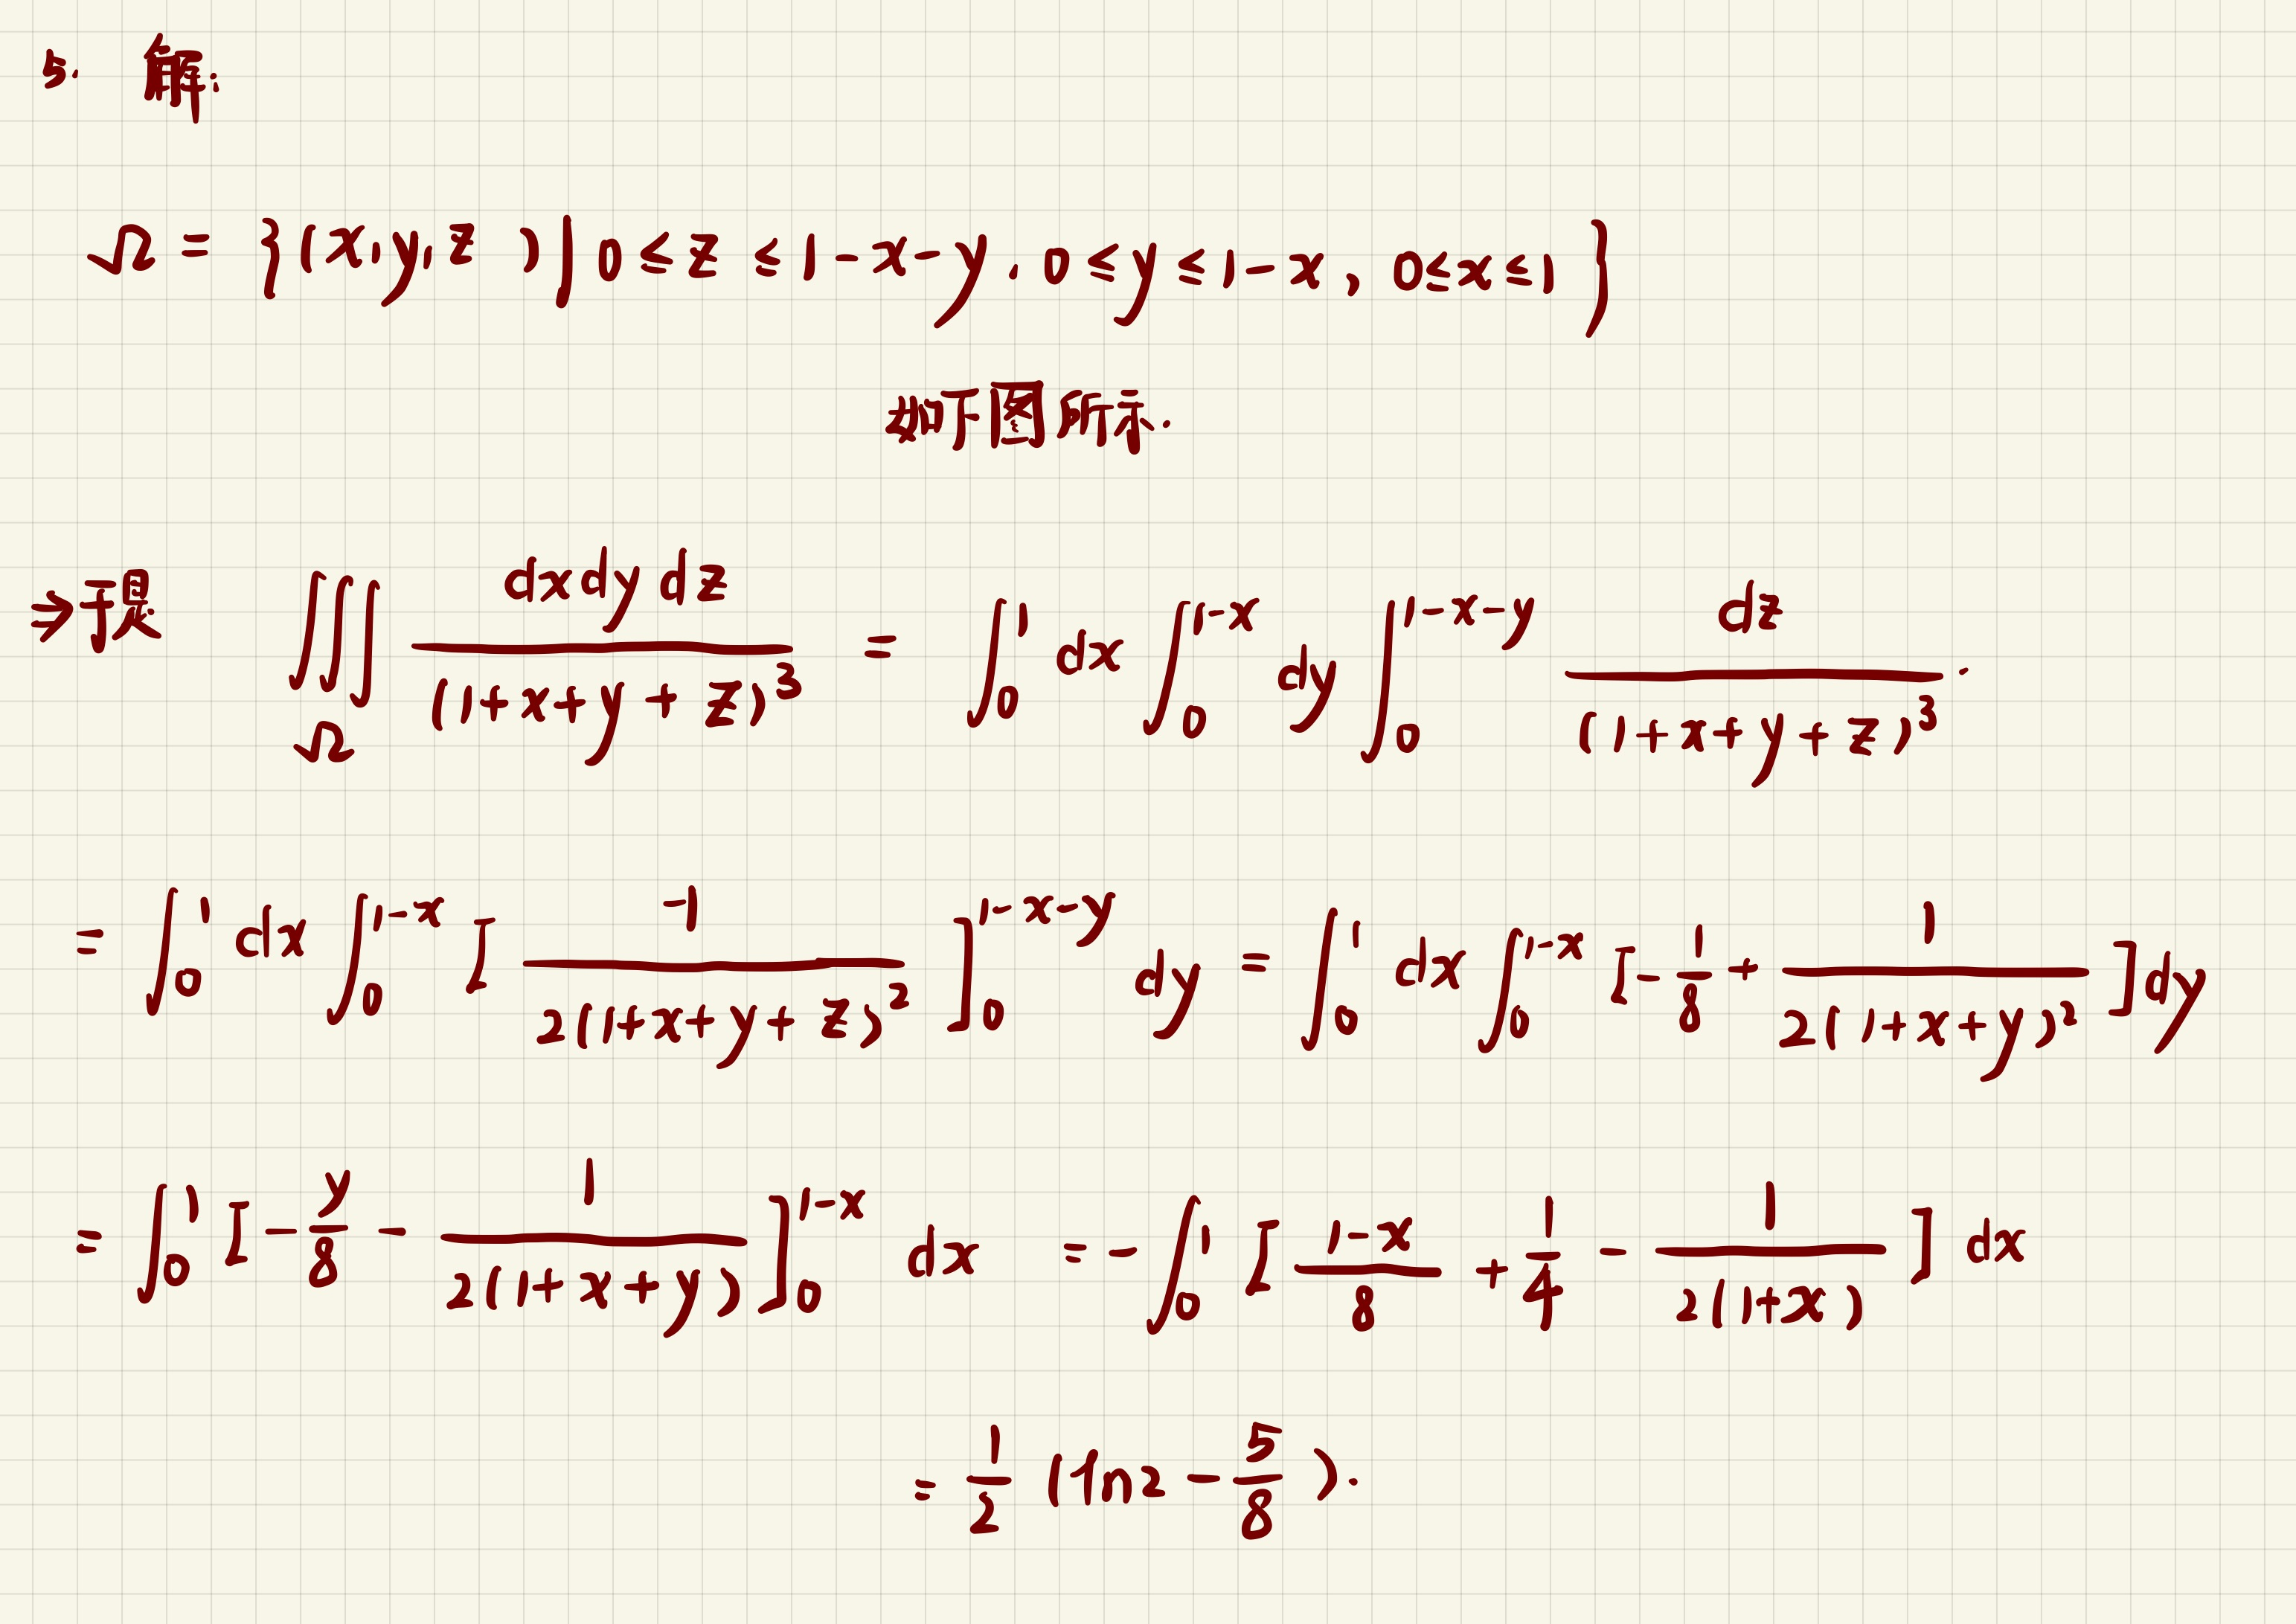 5. 解:
Ω = {(x,y,z)|0≤z≤1-x-y, 0≤y≤1-x, 0≤x≤1}
如下图所示.
⇒于是 ∭_Ω dxdydz/(1+x+y+z)³ = ∫₀¹ dx ∫₀^(1-x) dy ∫₀^(1-x-y) dz/(1+x+y+z)³.
= ∫₀¹ dx ∫₀^(1-x) [-1/(2(1+x+y+z)²)]₀^(1-x-y) dy = ∫₀¹ dx ∫₀^(1-x) [-1/8 + 1/(2(1+x+y)²)]dy
= ∫₀¹ [-y/8 - 1/(2(1+x+y))]₀^(1-x) dx = -∫₀¹ [(1-x)/8 + 1/4 - 1/(2(1+x))] dx
= 1/2 (ln2 - 5/8).